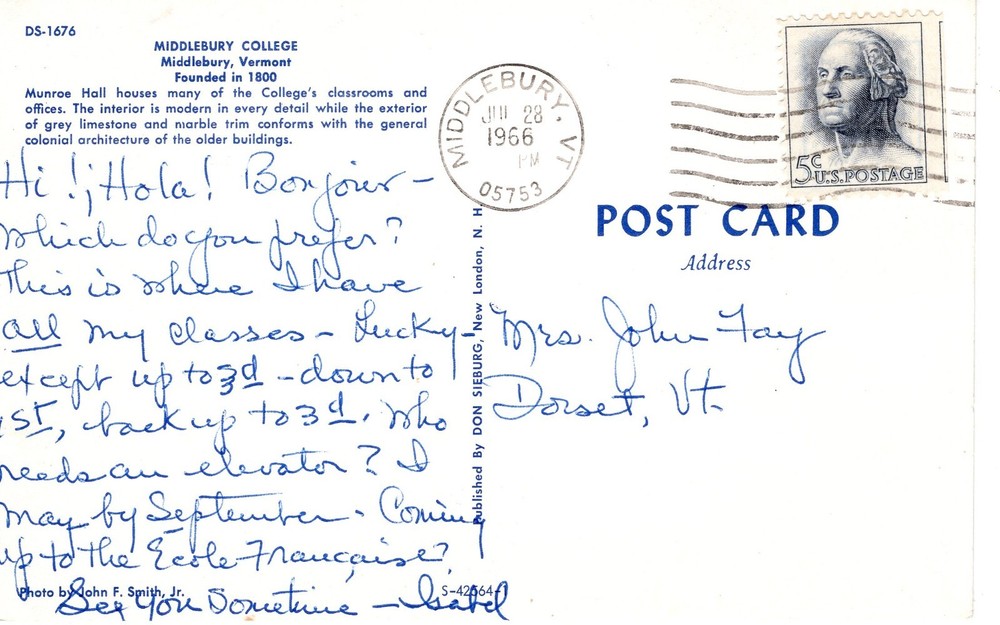 DS-1676
MIDDLEBURY COLLEGE
Middlebury, Vermont
Founded in 1800
Munroe Hall houses many of the College's classrooms and
offices. The interior is modern in every detail while the exterior
of grey limestone and marble trim conforms with the general
colonial architecture of the older buildings.
Hi! ¡Hola! Bonjour –
Which do you prefer?
This is where I have
all my classes – Lucky –
except up to 3d – down to
1st, back up to 3d. Who
needs an elevator? I
may by September. Coming
up to the Ecole Française?
See you Sometime – Isabel
Photo by John F. Smith, Jr.
S-42564-1
Published By DON SIEBURG, New London, N. H.
MIDDLEBURY, VT
JUL 28
1966
PM
05753
5c
U.S. POSTAGE
POST CARD
Address
Mrs. John Fay
Dorset, Vt.